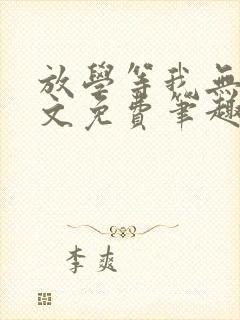 放學等我無
文免費筆趣
李爽